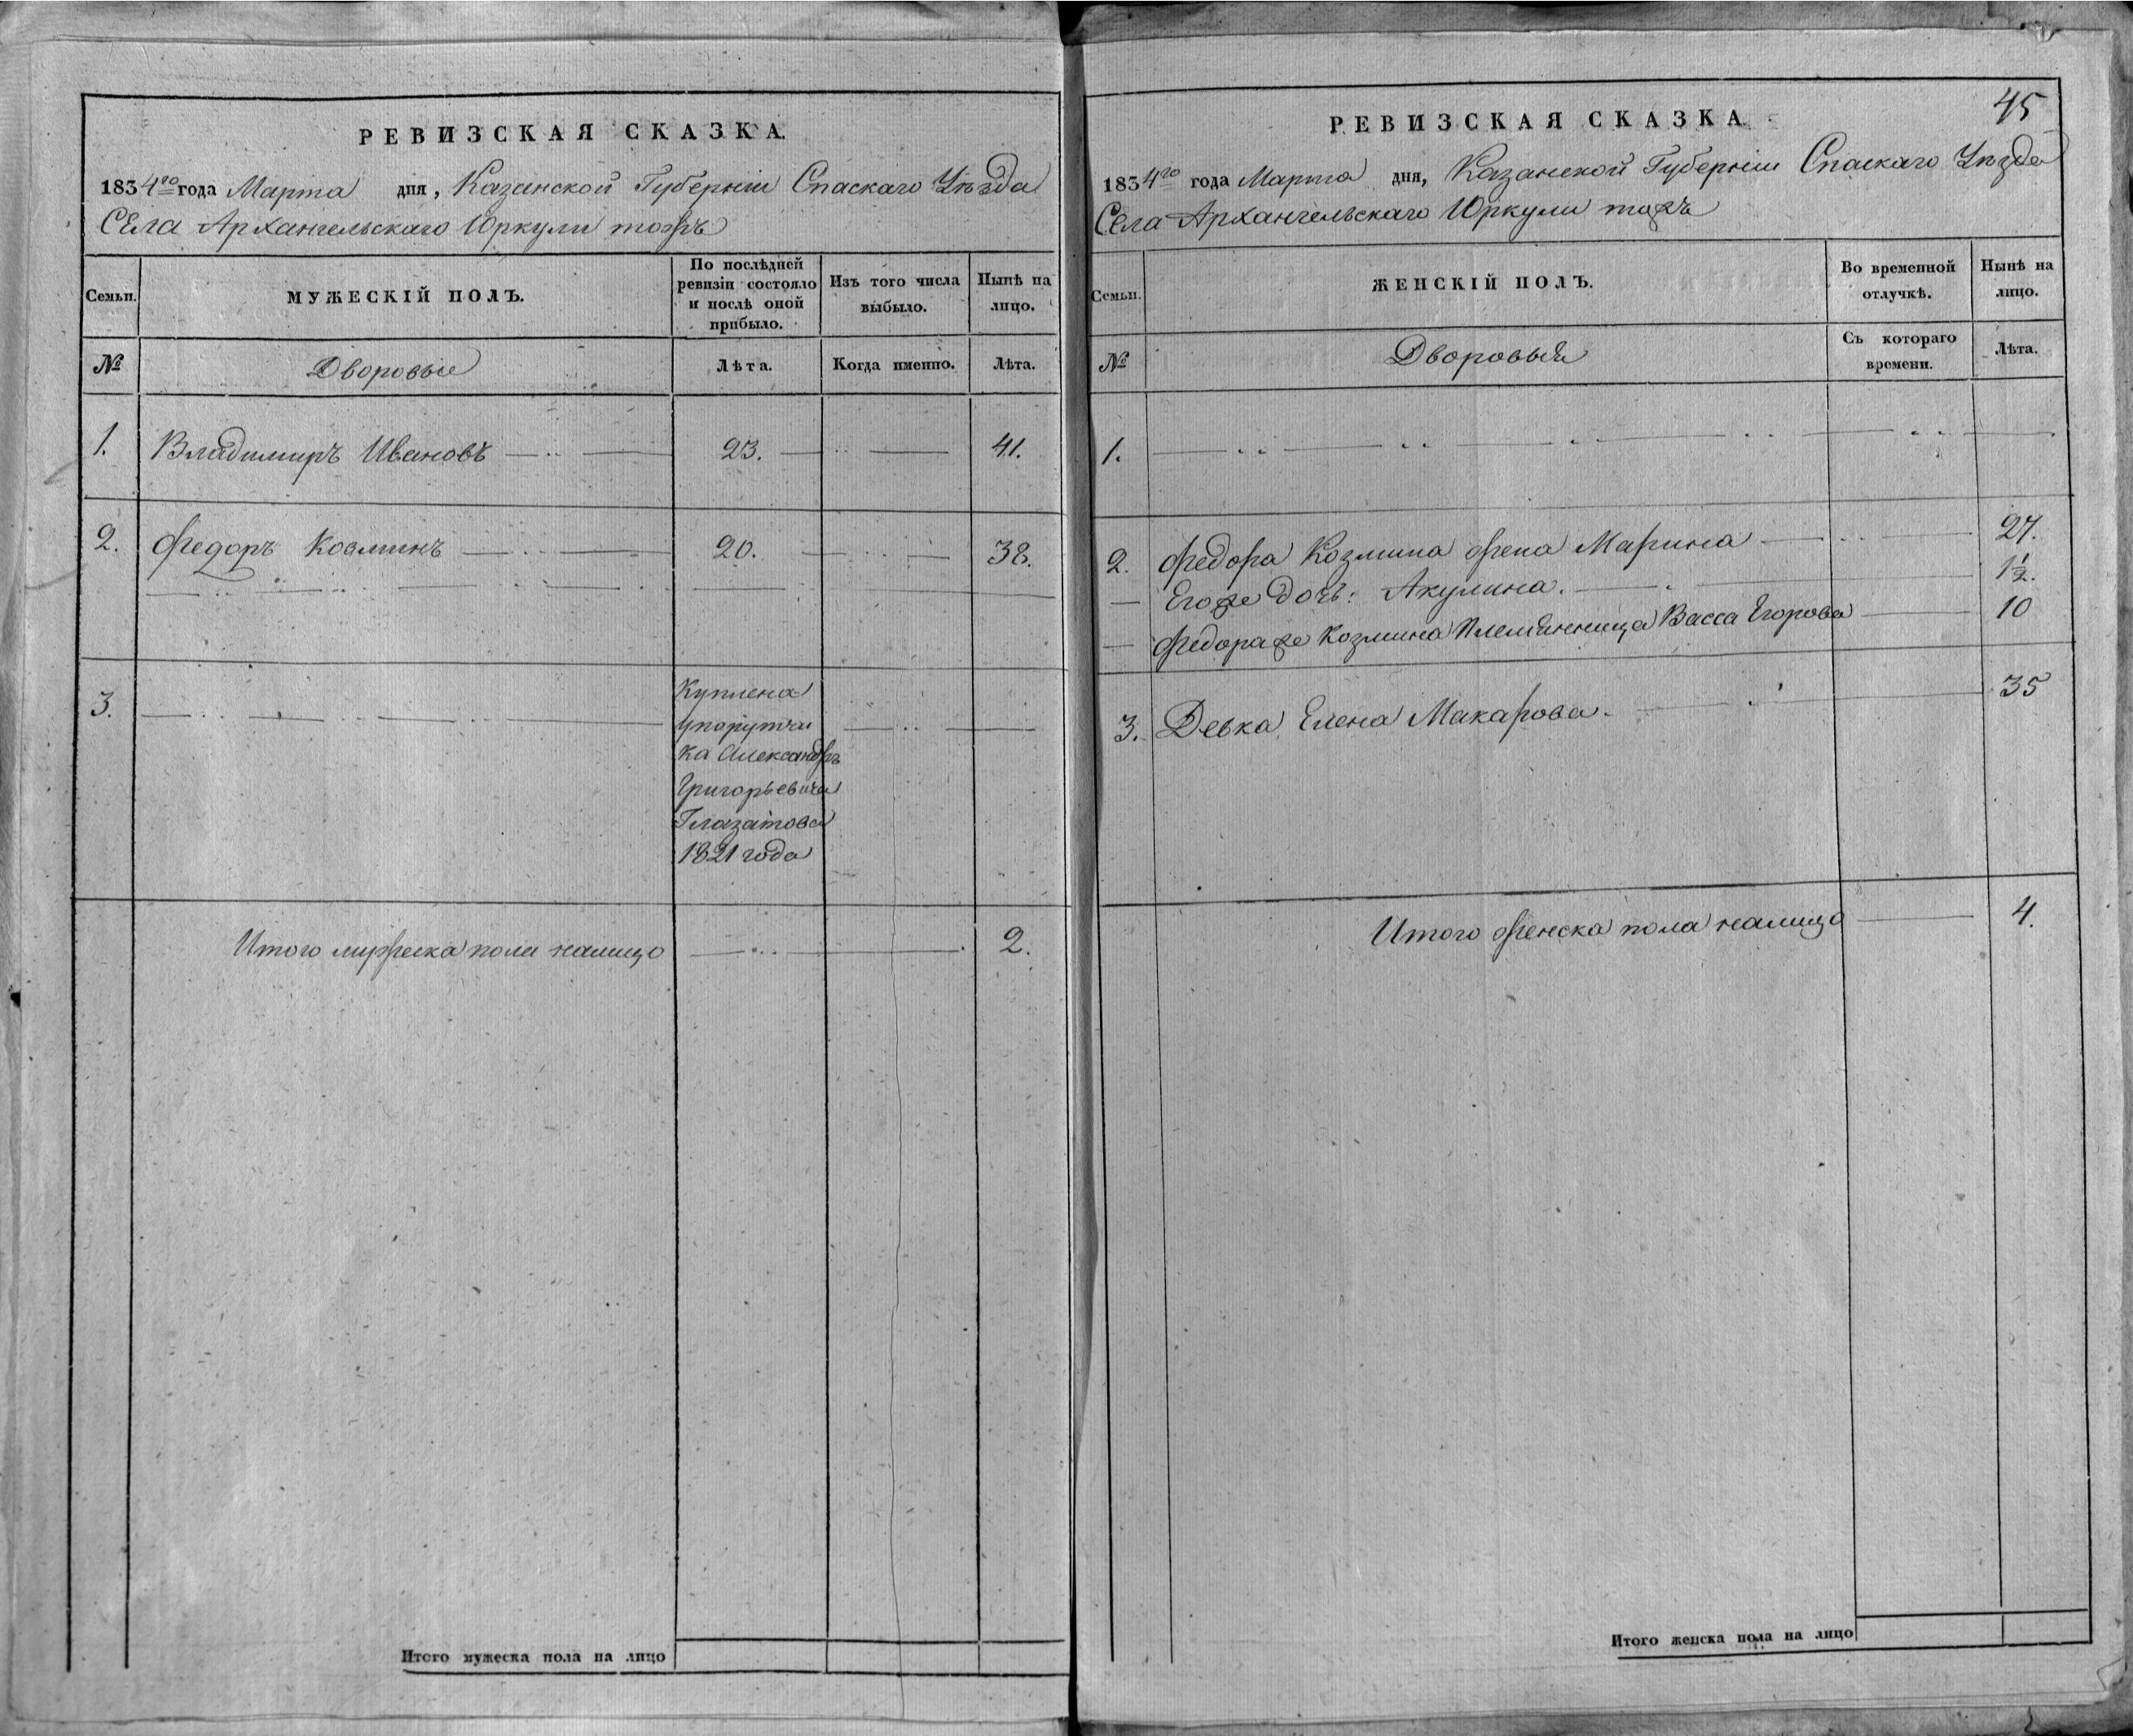 РЕВИЗСКАЯ СКАЗКА.
1834го года Марта дня, Казанской Губернiи Спаскаго Уѣзда
Села Архангельскаго Юркули тожъ
Семьи.
МУЖЕСКІЙ ПОЛЪ.
По послѣдней ревизіи состояло и послѣ оной прибыло.
Изъ того числа выбыло.
Нынѣ на лицо.
№
Дворовые
Лѣта.
Когда именно.
Лѣта.
1. Владимиръ Ивановъ 23. 41.
2. Федоръ Козминъ 20. 38.
3.
Куплена
упоручи
ка Александръ
Григорьевича
Глазатова
1821 года
Итого мужеска пола налицо 2.
Итого мужеска пола на лицо
45
РЕВИЗСКАЯ СКАЗКА
1834го года Марта дня, Казанской Губернiи Спаскаго Уѣзда
Села Архангельскаго Юркули тожъ
Семьи.
ЖЕНСКІЙ ПОЛЪ.
Во временной отлучкѣ.
Нынѣ на лицо.
№
Дворовыя
Съ котораго времени.
Лѣта.
1.
2. Федора Козмина жена Марина 27.
Егоже дочь: Акулина. 1½.
Федораже Козмина племенница Васса Егорова 10
3. Девка Елена Макарова. 35
Итого женска пола налицо 4.
Итого женска пола на лицо